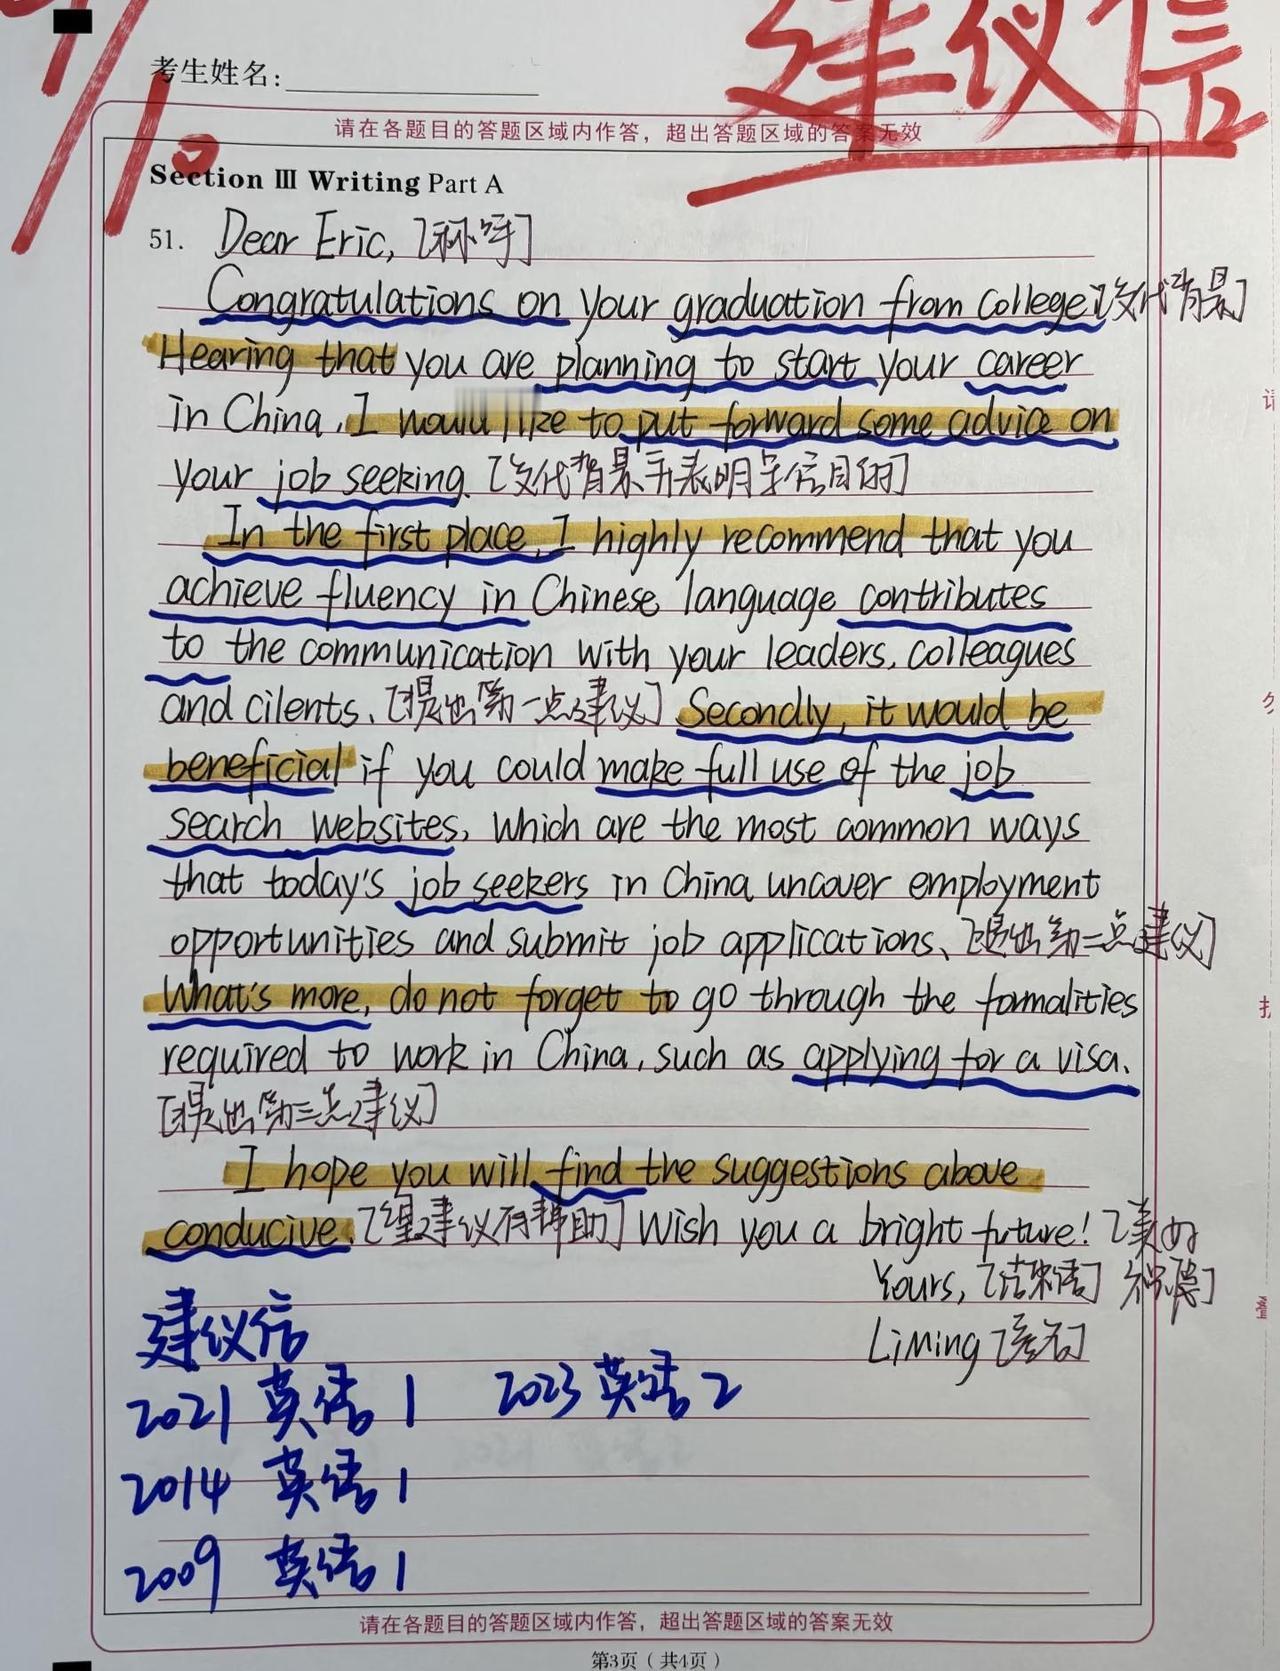 建议信
考生姓名:
请在各题目的答题区域内作答，超出答题区域的答案无效
Section Ⅲ Writing Part A
51. Dear Eric, [称呼]
Congratulations on your graduation from college. [交代背景]
Hearing that you are planning to start your career
in China, I would like to put forward some advice on
your job seeking. [交代背景并表明写信目的]
In the first place, I highly recommend that you
achieve fluency in Chinese language contributes
to the communication with your leaders, colleagues
and cilents. [提出第一点建议] Secondly, it would be
beneficial if you could make full use of the job
search websites, which are the most common ways
that today's job seekers in China uncover employment
opportunities and submit job applications. [提出第二点建议]
What's more, do not forget to go through the formalities
required to work in China, such as applying for a visa.
[提出第三点建议]
I hope you will find the suggestions above
conducive. [望建议有帮助] Wish you a bright future! [美好
祝愿]
Yours, [结束语]
Li Ming [签名]
建议信
2021 英语1 2023 英语2
2014 英语1
2009 英语1
请在各题目的答题区域内作答，超出答题区域的答案无效
第3页（共4页）